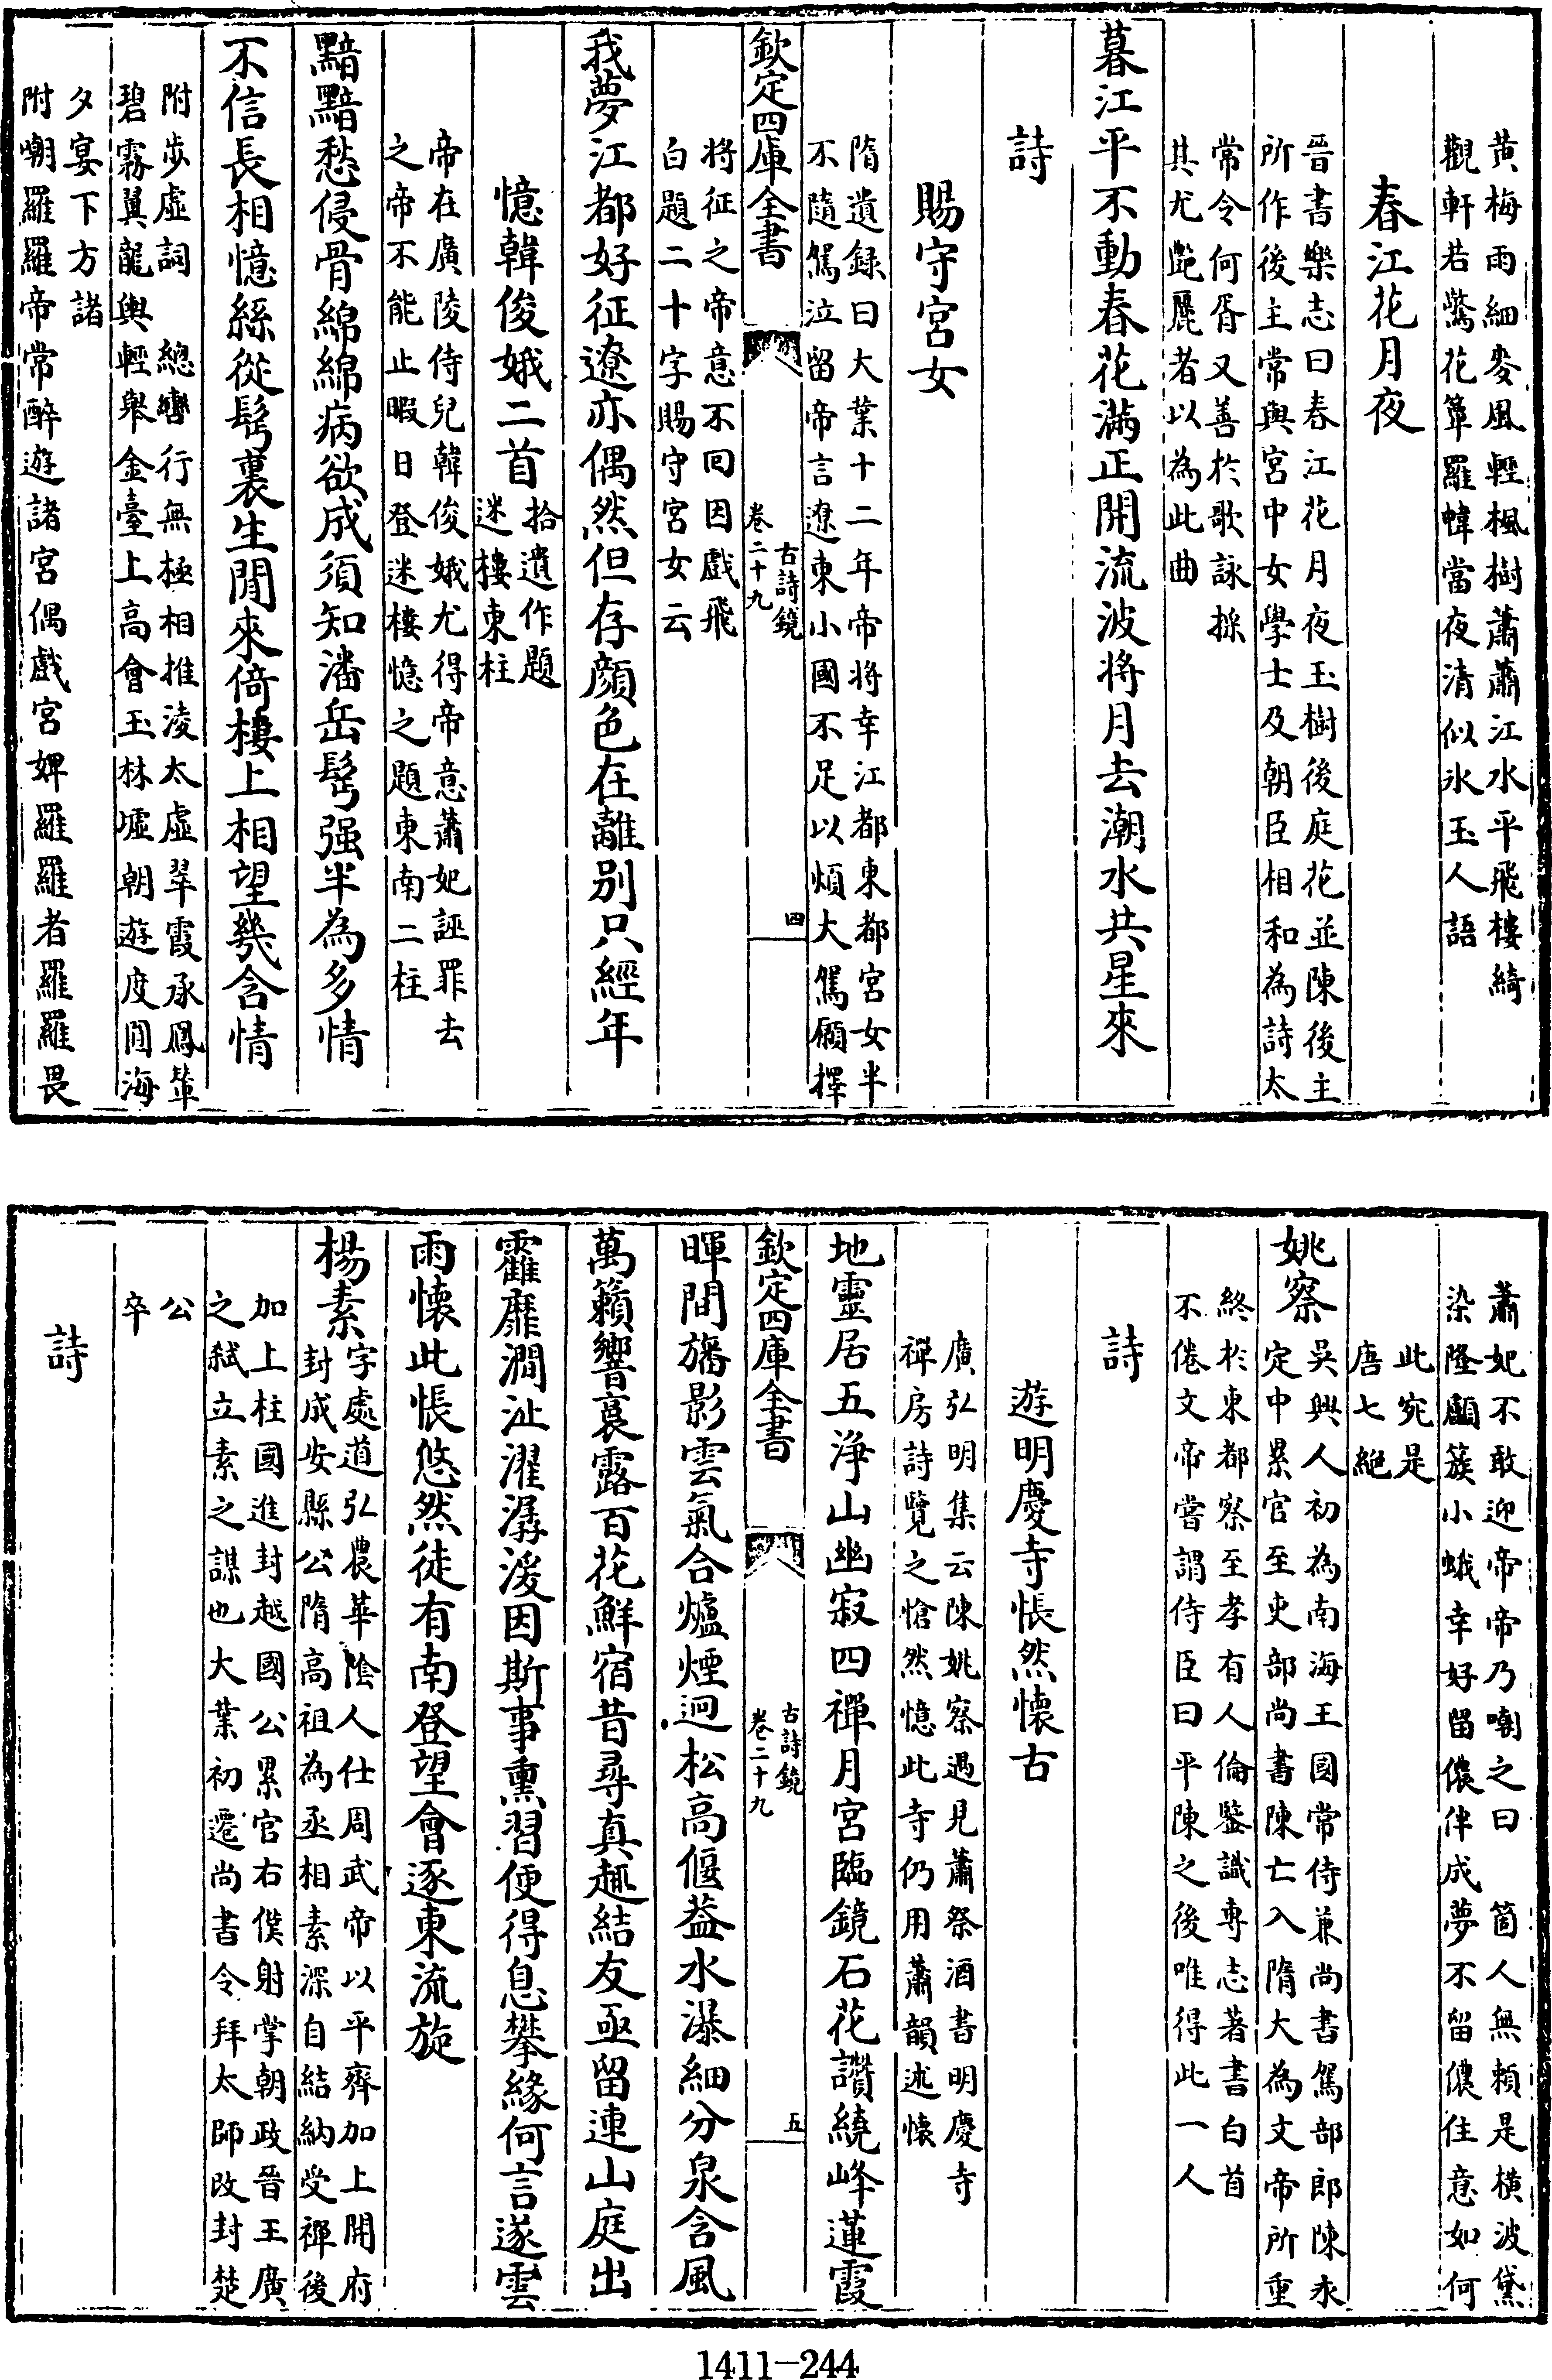 黄梅雨細麥風輕楓樹蕭蕭江水平飛樓綺
觀軒若驚花簟羅幃當夜清似氷玉人語
春江花月夜
晉書樂志曰春江花月夜玉樹後庭花並陳後主
所作後主常與宮中女學士及朝臣相和為詩太
常令何胥又善於歌詠採
其尤艷麗者以為此曲
暮江平不動春花滿正開流波将月去潮水共星來
詩
賜守宮女
隋遺録曰大業十二年帝将幸江都東都宮女半
不隨駕泣留帝言遼東小國不足以煩大駕願擇
欽定四庫全書
古詩鏡
卷二十九
四
将征之帝意不囘因戲飛
白題二十字賜守宮女云
我夢江都好征遼亦偶然但存顔色在離别只經年
憶韓俊娥二首
拾遺作題
迷樓東柱
帝在廣陵侍兒韓俊娥尤得帝意蕭妃誣罪去
之帝不能止暇日登迷樓憶之題東南二柱
黯黯愁侵骨綿綿病欲成須知潘岳髩强半為多情
不信長相憶絲從髩裏生閒來倚樓上相望幾含情
附步虛詞　總轡行無極相推淩太虛翠霞承鳳輦
碧霧翼龍輿輕舉金臺上高會玉林墟朝遊度圓海
夕宴下方諸
附嘲羅羅帝常醉遊諸宮偶戲宮婢羅羅者羅羅畏
蕭妃不敢迎帝帝乃嘲之曰　箇人無賴是横波黛
染隆顱簇小蛾幸好留儂伴成夢不留儂住意如何
此宛是
唐七絶
姚察
吳興人初為南海王國常侍兼尚書駕部郎陳永
定中累官至吏部尚書陳亡入隋大為文帝所重
終於東都察至孝有人倫鑒識專志著書白首
不倦文帝嘗謂侍臣曰平陳之後唯得此一人
詩
遊明慶寺悵然懷古
廣弘明集云陳姚察遇見蕭祭酒書明慶寺
禪房詩覽之愴然憶此寺仍用蕭韻述懷
地靈居五淨山幽寂四禪月宮臨鏡石花讚繞峰蓮霞
欽定四庫全書
古詩鏡
卷二十九
五
暉間旛影雲氣合爐煙迥松高偃葢水瀑細分泉含風
萬籟響裛露百花鮮宿昔尋真趣結友亟留連山庭出
霍靡澗沚濯潺湲因斯事熏習便得息攀緣何言遂雲
雨懷此悵悠然徒有南登望會逐東流旋
楊素
字處道弘農華陰人仕周武帝以平齊加上開府
封成安縣公隋高祖為丞相素深自結納受禪後
加上柱國進封越國公累官右僕射掌朝政晉王廣
之弑立素之謀也大業初遷尚書令拜太師改封楚
公
卒
詩
1411—244